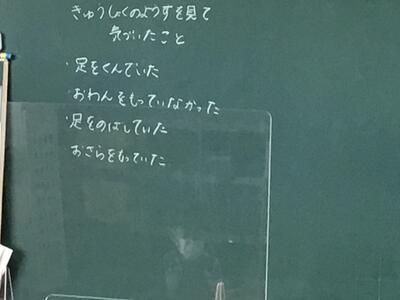 きゅうしょくのようすを見て
気づいたこと
・足をくんでいた
・おわんをもっていなかった
・足をのばしていた
おさらをもっていた